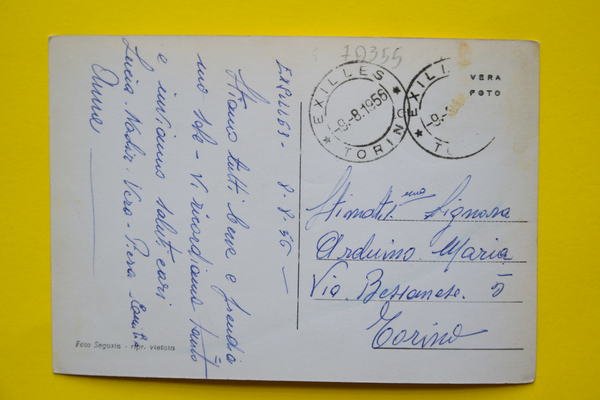 EXILLES - 8.8.56 -
Stiamo tutti bene e prendia
mo sole - Vi ricordiamo tanto
e inviamo saluti cari
Lucia - Nadia - Vera - Piera -
Anna
Foto Segusia - ripr. vietata
70355
EXILLES
-9.-8.1956
TORINO
EXILL
-9.-
TO
VERA
FOTO
Stimat.ma Signora
Arduino Maria
Via Bessanese. 5
Torino